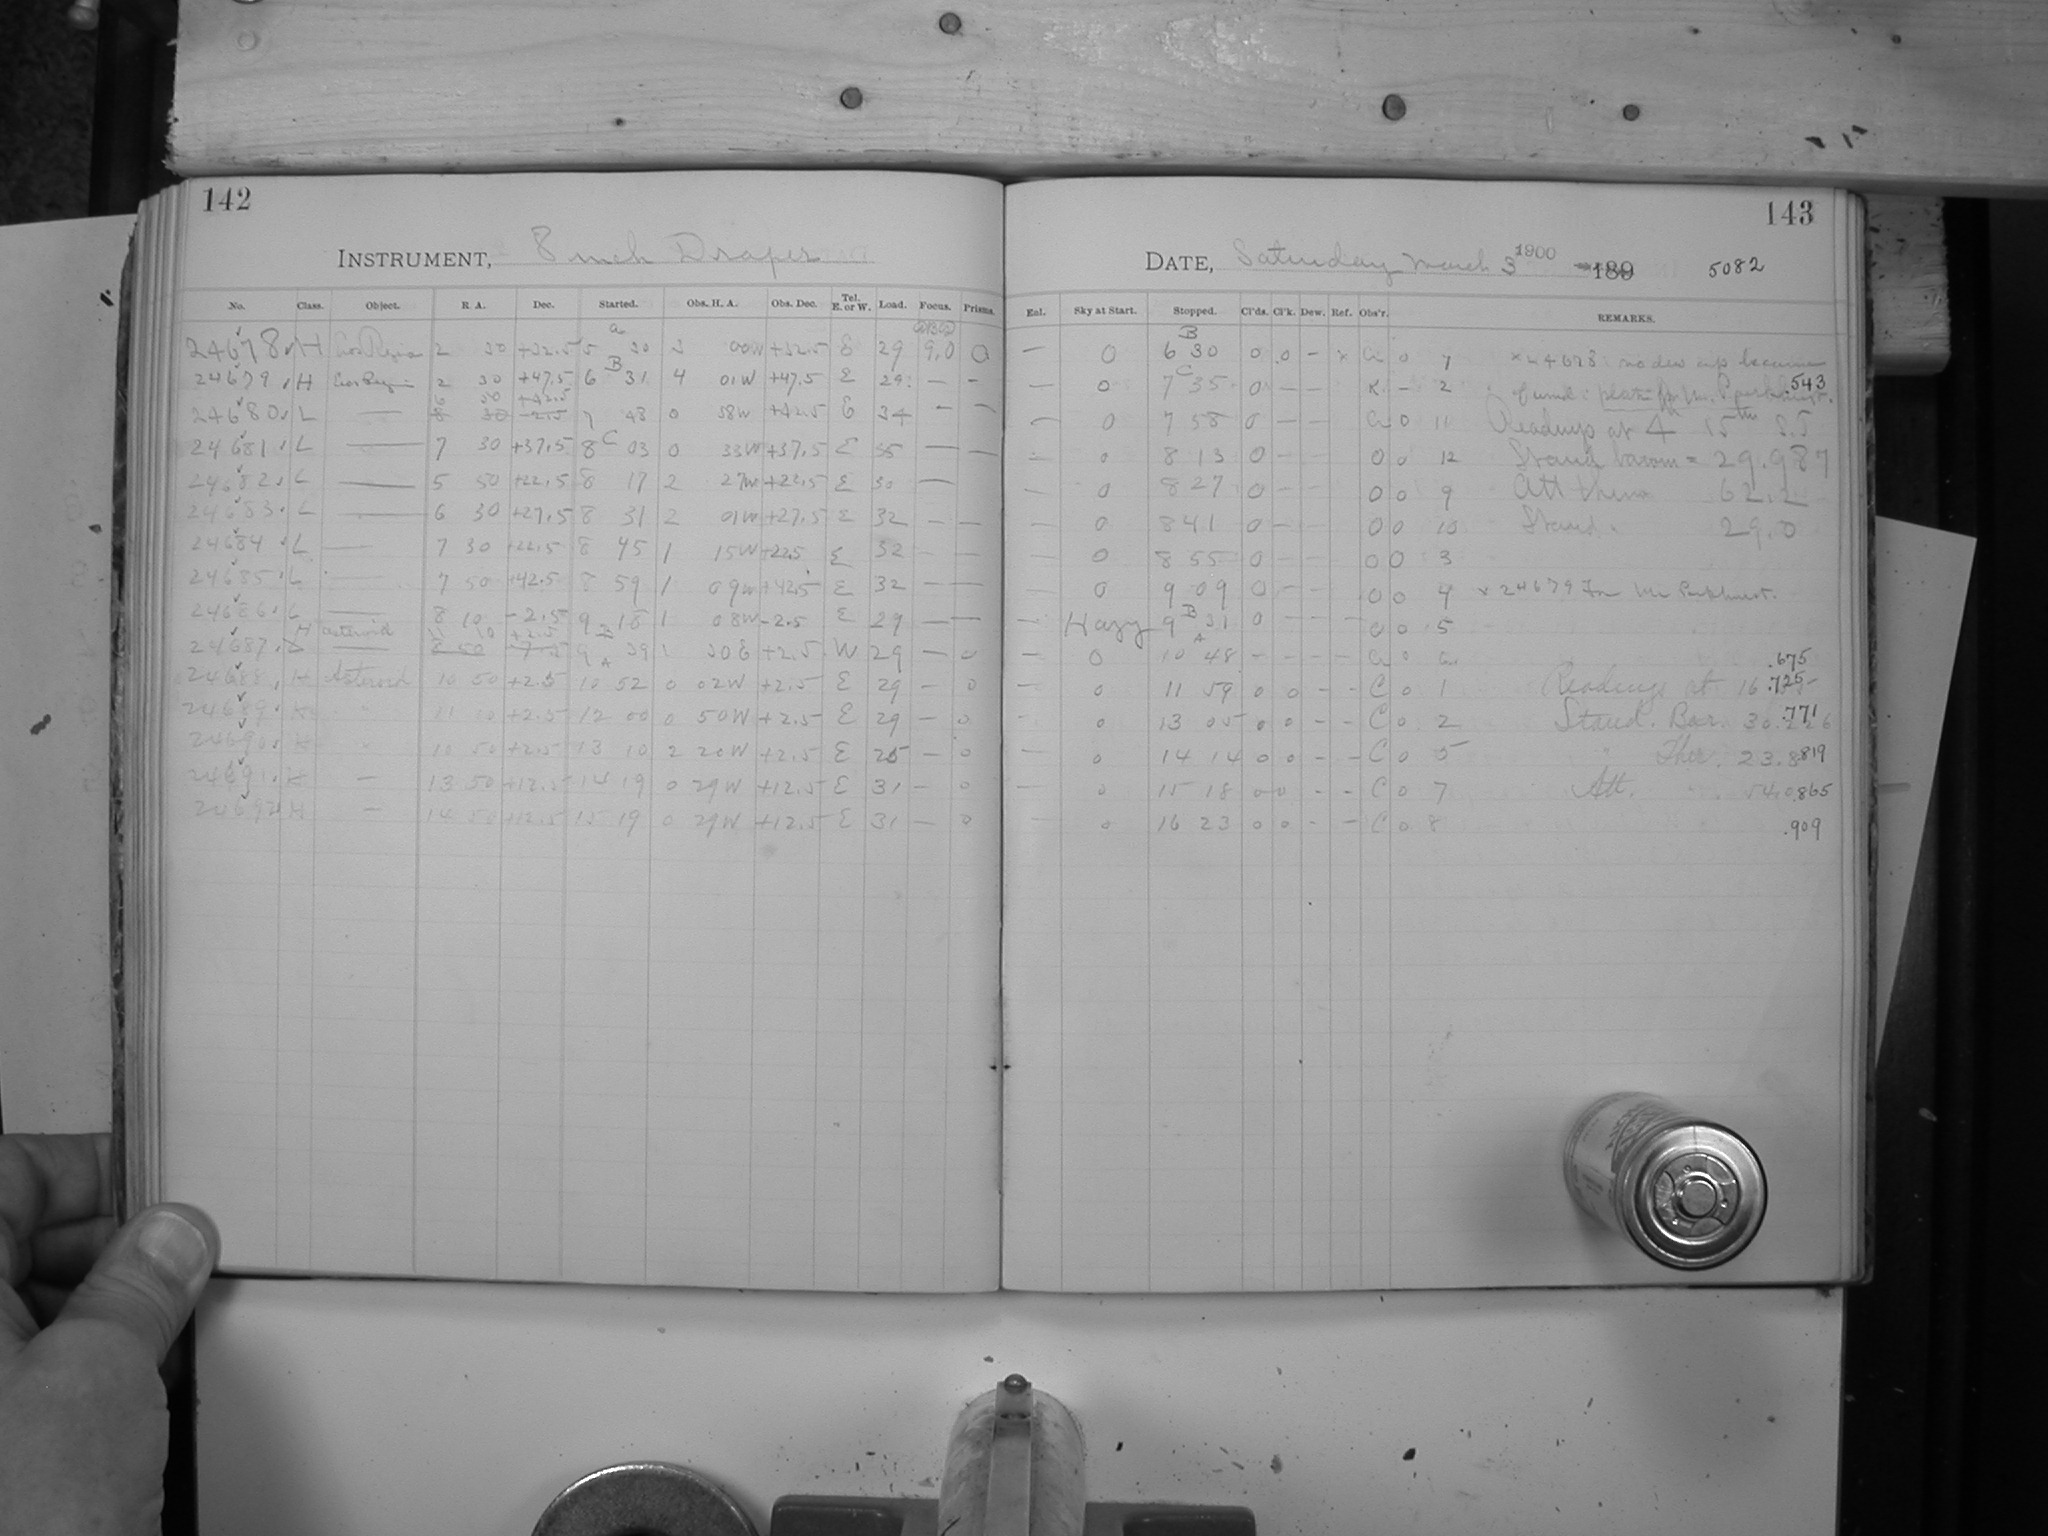 142
INSTRUMENT, 8 inch Draper
No. Class. Object. R. A. Dec. Started. Obs. H. A. Obs. Dec. Tel. E. or W. Load. Focus. Prisms.
24678 H 2 30 +32.5 5 30 3 00W +32.5 E 29 9.0 0
24679 H 2 30 +47.5 6 31 4 01W +47.5 E 29 — —
6 30 +42.5
24680 L — 8 30 -2.5 7 48 0 58W +42.5 E 34 — —
24681 L — 7 30 +37.5 8 03 0 33W +37.5 E 35 — —
24682 L — 5 50 +22.5 8 17 2 27W +22.5 E 30 —
24683 L — 6 30 +27.5 8 31 2 01W +27.5 E 32 — —
24684 L — 7 30 +22.5 8 45 1 15W +22.5 E 32 — —
24685 L — 7 50 +42.5 8 59 1 09W +42.5 E 32 — —
24686 L — 8 10 -2.5 9 1 08W -2.5 E 29 — —
H asteroid 11 10 +2.5
24687 — 8 50 9 39 1 30E +2.5 W 29 — 0
24688 H Asteroid 10 50 +2.5 10 52 0 02W +2.5 E 29 — 0
24689 H " 11 10 +2.5 12 00 0 50W +2.5 E 29 — 0
24690 H " 10 50 +2.5 13 10 2 20W +2.5 E 25 — 0
24691 H — 13 50 +12.5 14 19 0 29W +12.5 E 31 — 0
24692 H — 14 50 +12.5 15 19 0 29W +12.5 E 31 — 0
143
DATE, Saturday March 3 1900 189 5082
Enl. Sky at Start. Stopped. Cl'ds. Cl'k. Dew. Ref. Obs'r. REMARKS.
— 0 B 6 30 0 0 — x 0 7 x 24678 no dew cap because
— 0 C 7 35 0 — — K — 2 found: plate for Mr. Parkhurst. 543
— 0 7 58 0 — — 0 11 Readings at 4 15m S.T
— 0 8 13 0 — — 0 0 12 Stand barom = 29.987
— 0 8 27 0 — — 0 0 9 Att therm 62.2
— 0 8 41 0 — — 0 0 10 Stand. 29.0
— 0 8 55 0 — — 0 0 3
— 0 9 09 0 — — 0 0 4 x 24679 For Mr Parkhurst.
— Hazy 9 B 31 0 — — — 0 0 5
— 0 A 10 48 — — — — 0 .675
— 0 11 59 0 0 — — C 0 1 Readings at 16 .725
— 0 13 05 0 0 — — C 0 2 Stand. Bar. 30. .771
0 14 14 0 0 — — C 0 5 " Ther. 23.8 .819
— 0 15 18 0 0 — — C 0 7 Att. " .865
0 16 23 0 0 — — C 0 8 .909